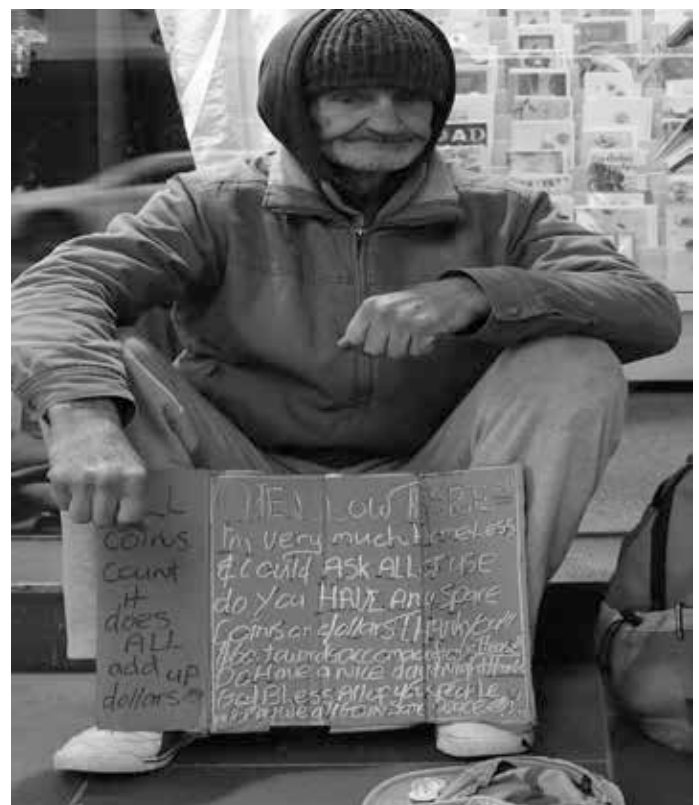 AD
ALL
coins
count
it
does
ALL
add up
dollars
HEllow
I'm very much Homeless
& could Ask ALL
do you HAVE Any SPare
Coins or dollars Thankyou!!
towards accomodation Please
Do Have a nice day/night
God Bless All of you People